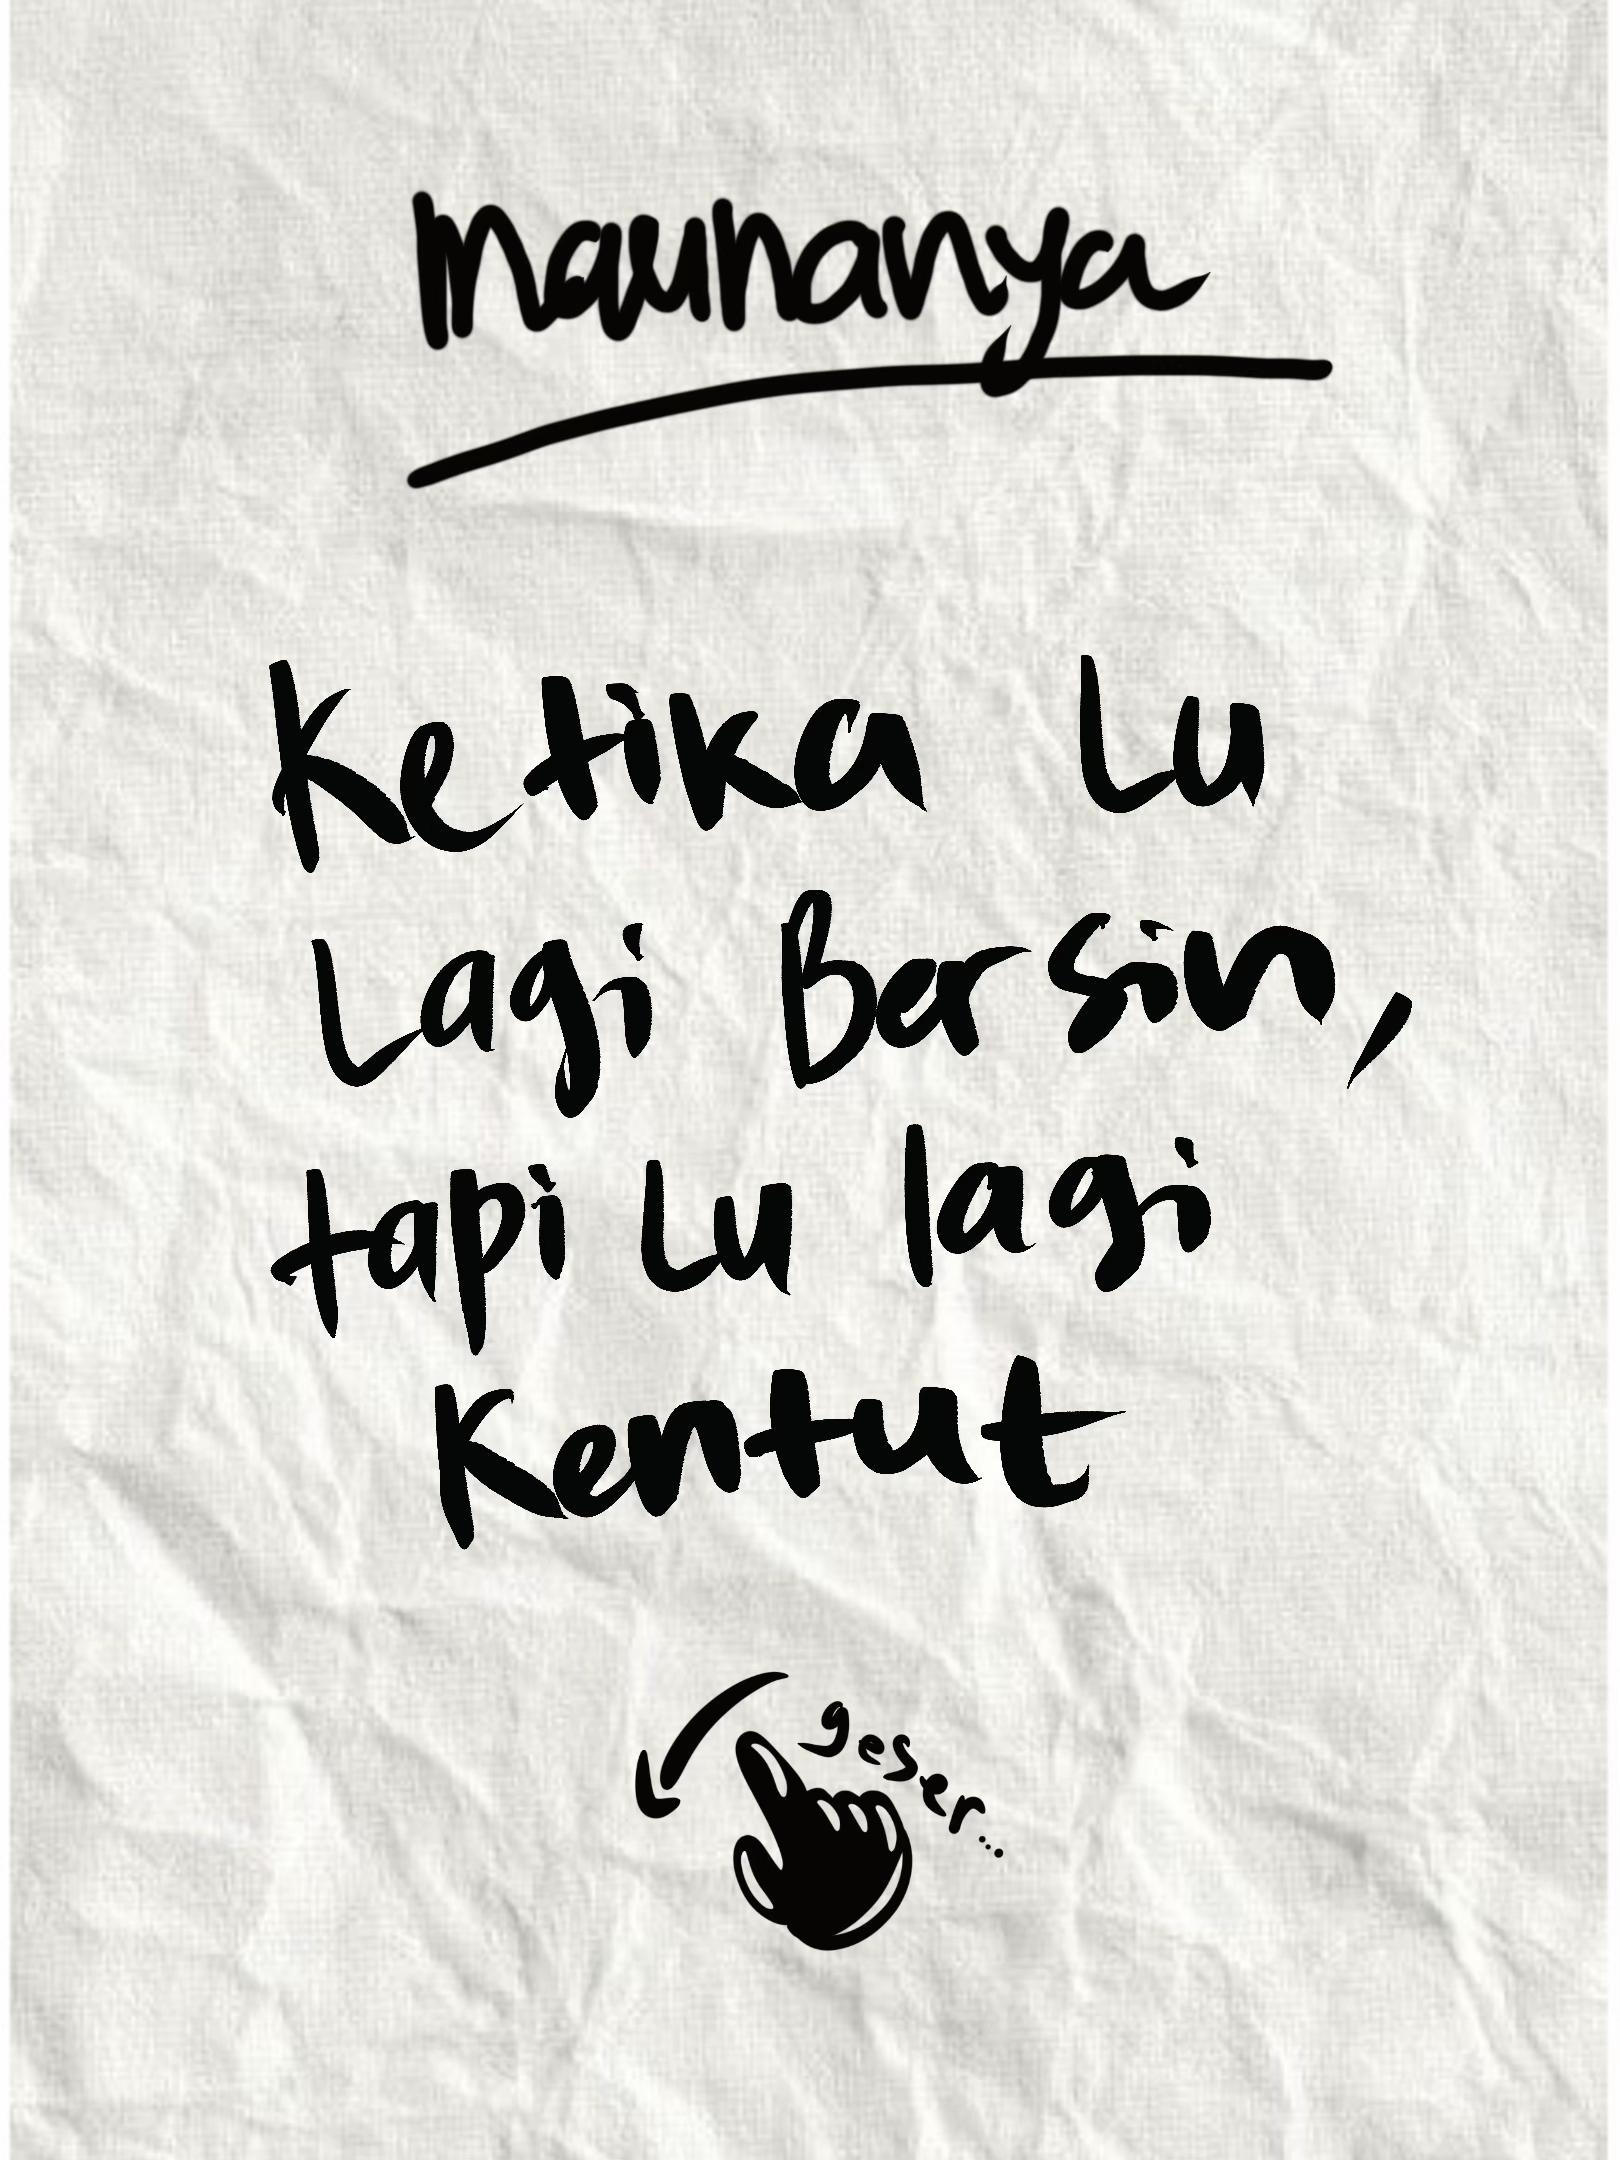 maunanya
Ketika Lu
Lagi Bersin,
tapi Lu lagi
Kentut
geser...